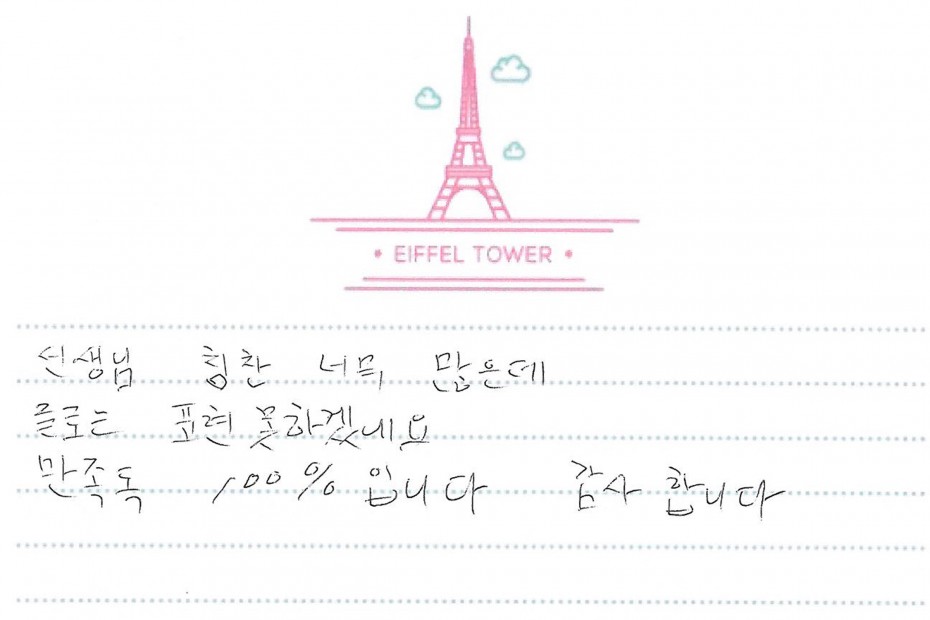 EIFFEL TOWER
선생님 칭찬 너무 많은데
글로는 표현 못하겠네요
만족독 100% 입니다 감사 합니다